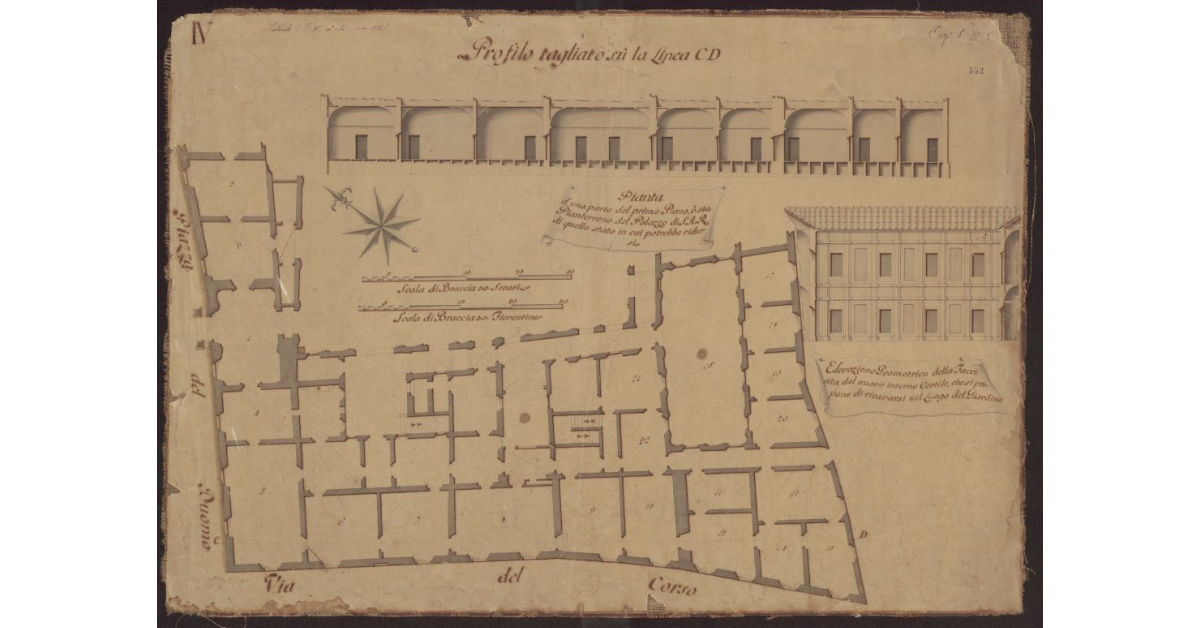 IV
Profilo tagliato sù la Linea CD
552
Pianta
d'una parte del primo Piano, ò sia
Pianterreno del Palazzo di S.A.R.
di quello stato in cui potrebbe ridur
si
10 20 30
Scala di Braccia 30 Senesi
10 20 30
Scala di Braccia 30 Fiorentine
Elevazione Geometrica della Facci
ata del nuovo interno Cortile, che si pro
pone di ricavarsi nel Luogo del Giardino
Piazza
del
Duomo
C
D
Via del Corso
4
3
6
7
8
9
10
11
12
13
14
15
17
18
19
20
21
22